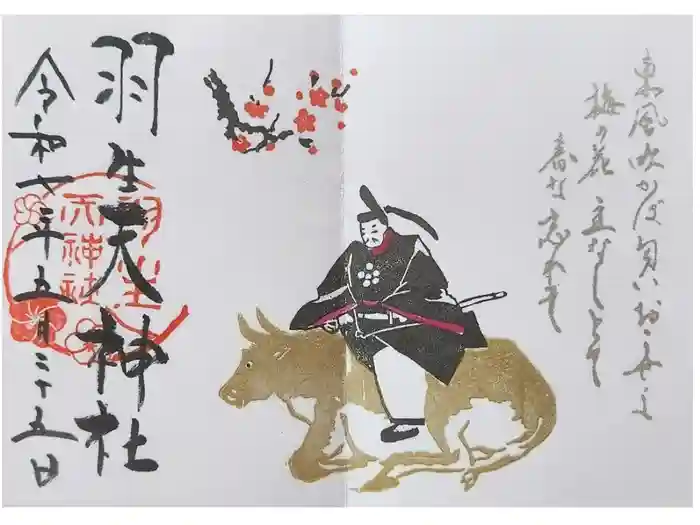 東風吹かば匂ひおこせよ
梅の花主なしとて
春な忘れそ
羽生天神社
羽生
天神社
令和七年五月二十五日